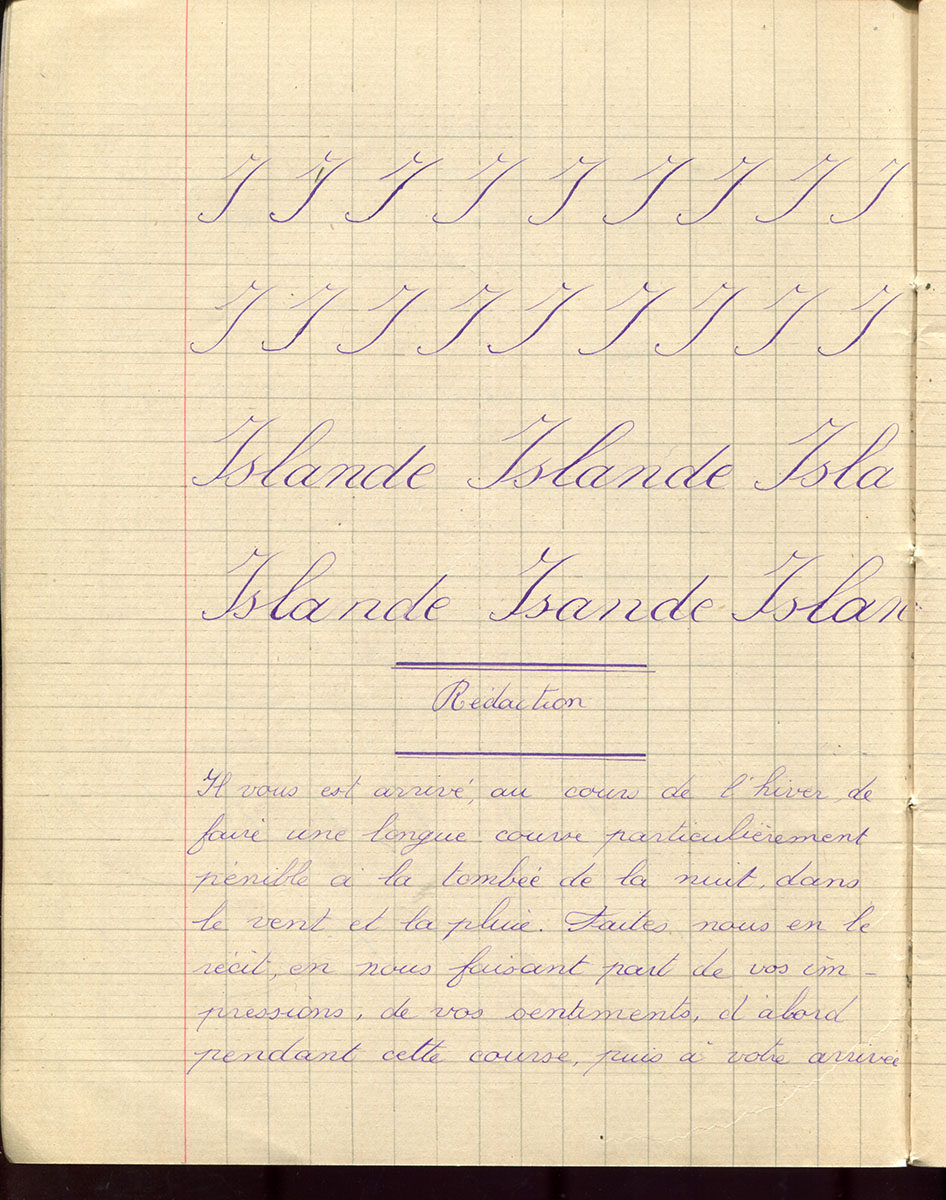 I I I I I I I I I
I I I I I I I I I
Islande Islande Isla
Islande Isande Islan
Rédaction
Il vous est arrivé, au cours de l'hiver, de
faire une longue courve particulièrement
pénible à la tombée de la nuit, dans
le vent et la pluie. Faites nous en le
récit, en nous faisant part de vos im-
pressions, de vos sentiments, d'abord
pendant cette course, puis à votre arrivée